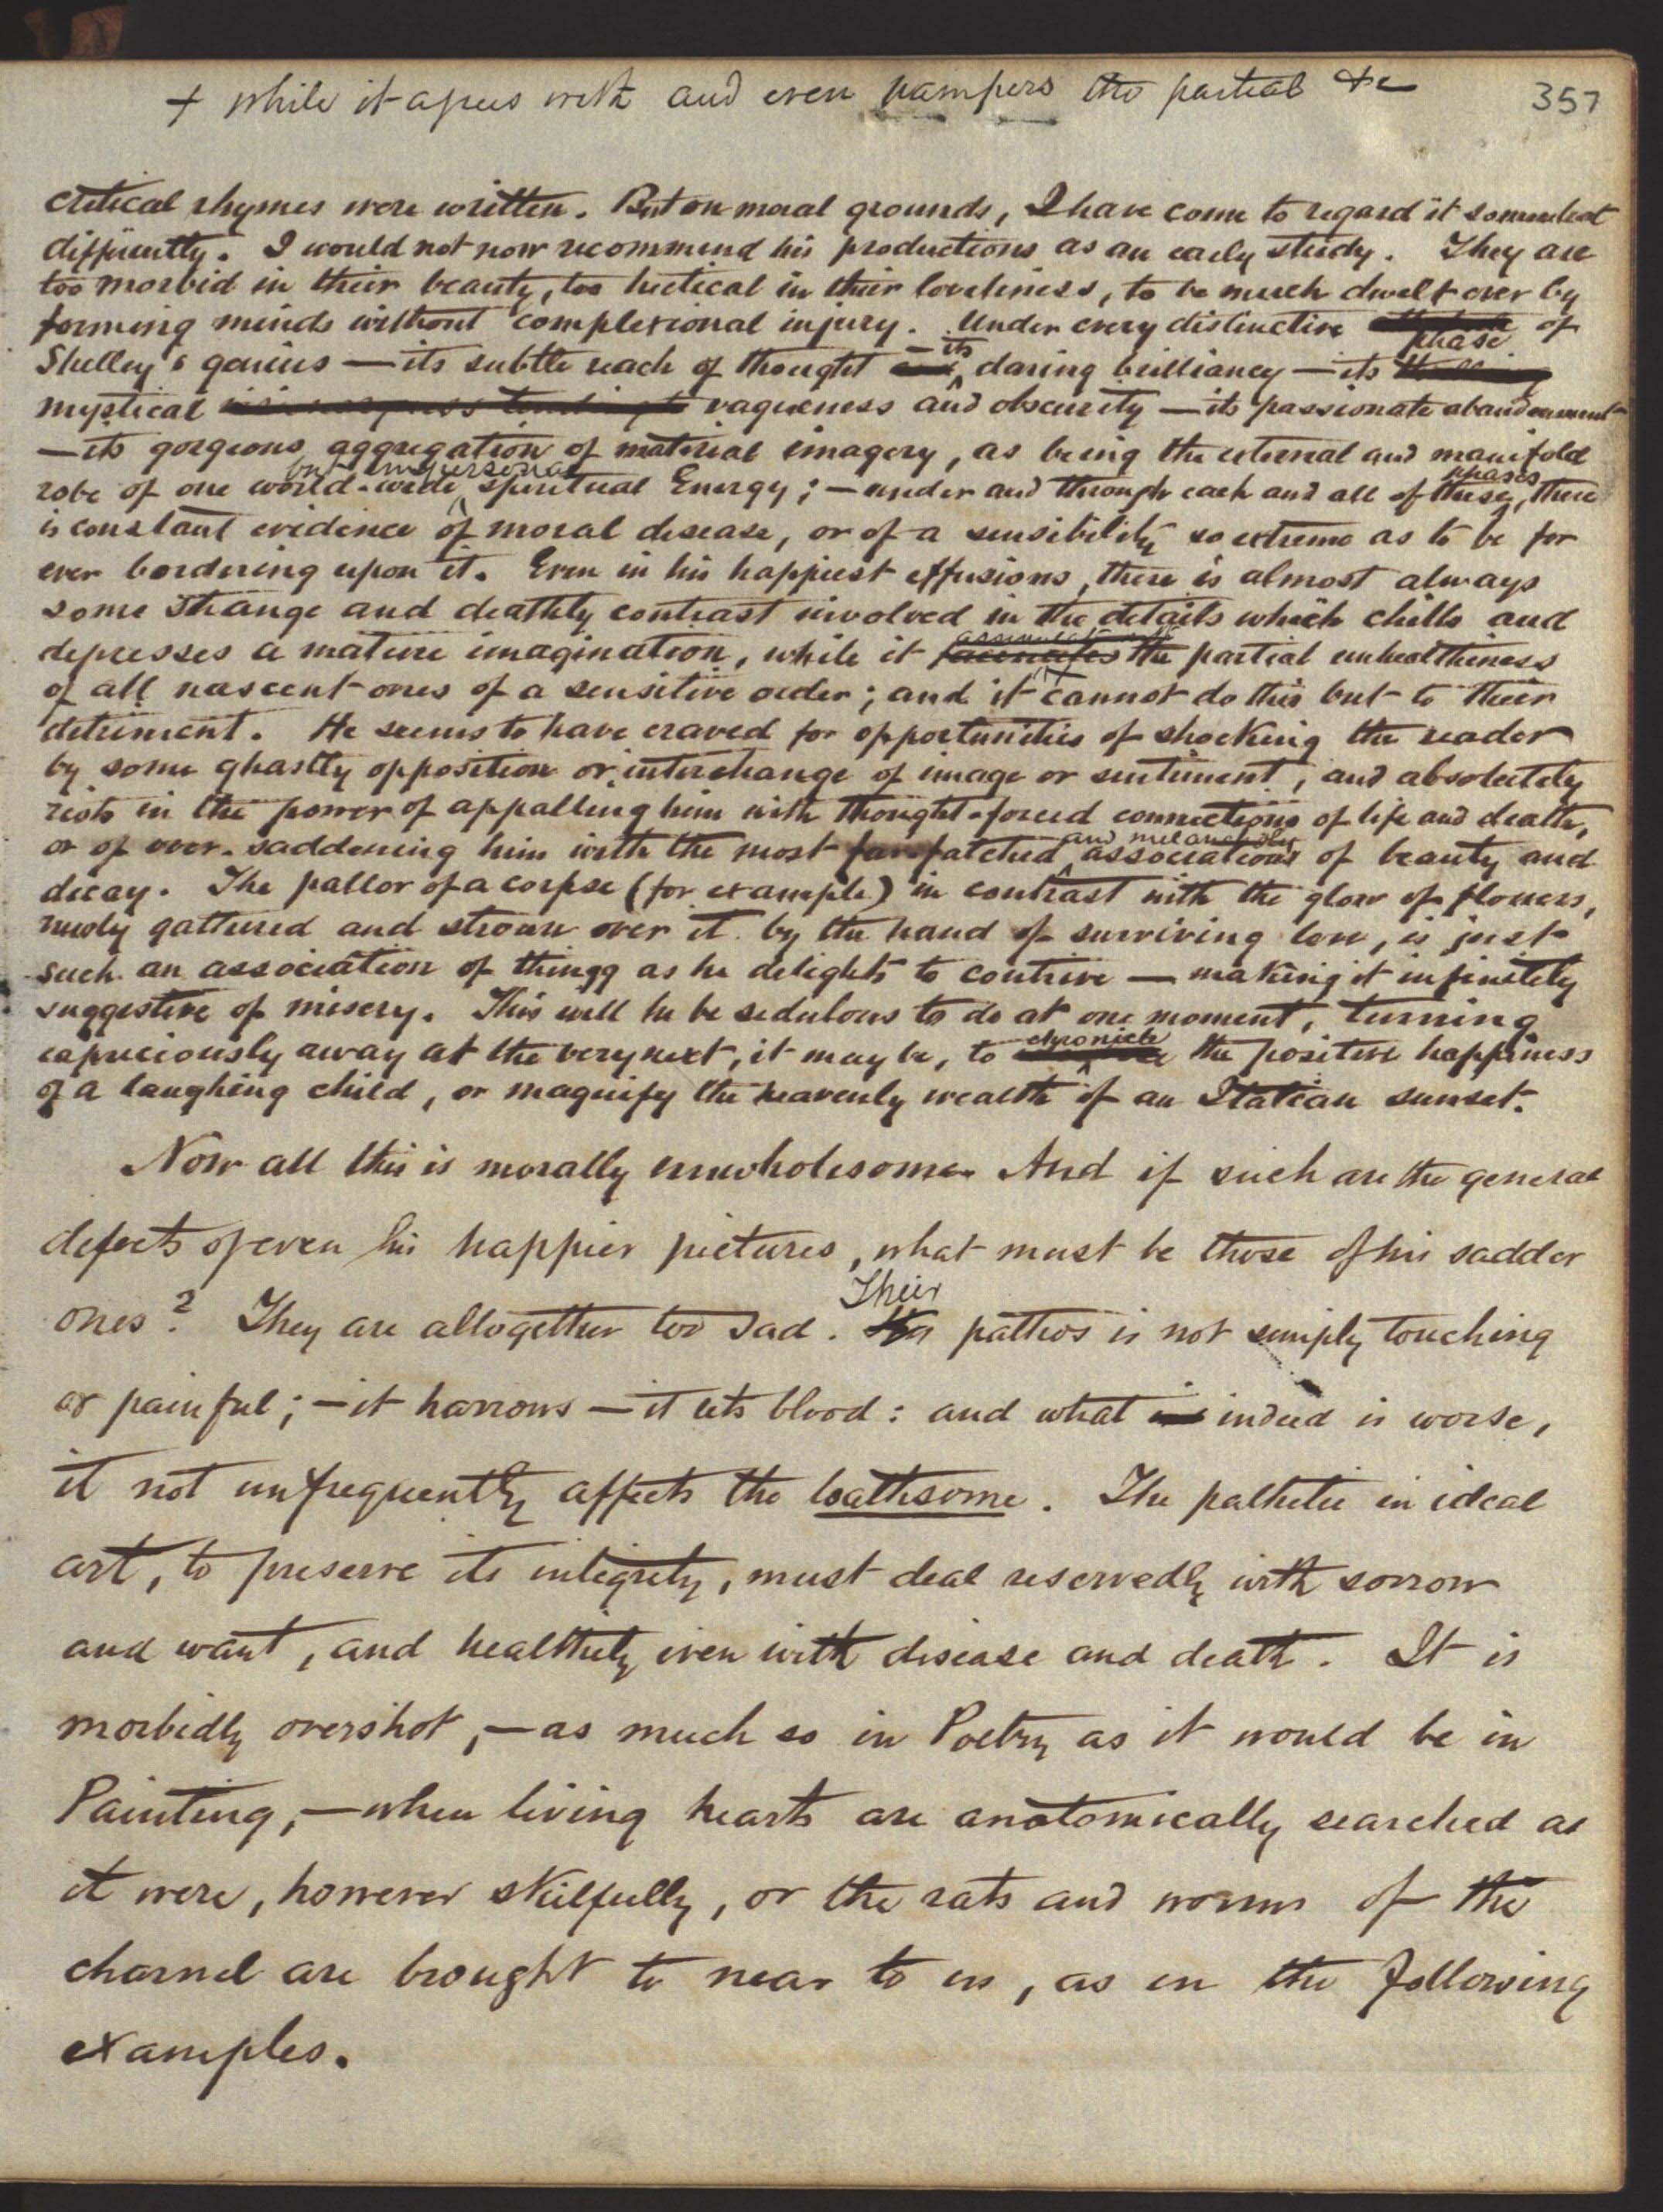 + while it agrees with and even pampers the partial &c
357
critical rhymes were written. But on moral grounds, I have come to regard it somewhat
differently. I would not now recommend his productions as an early study. They are
too morbid in their beauty, too hectical in their loveliness, to be much dwelt over by
forming minds without complexional injury. Under every distinctive phase of
Shelley's genius — its subtle reach of thought — its daring brilliancy — its
mystical vagueness and obscurity — its passionate abandonment
— its gorgeous aggregation of material imagery, as being the external and manifold
robe of one world-wide but impersonal spiritual Energy; — under and through each and all of these phases, there
is constant evidence of moral disease, or of a sensibility so extreme as to be for
ever bordering upon it. Even in his happiest effusions, there is almost always
some strange and deathly contrast involved in the details which chills and
depresses a mature imagination, while it the partial unhealthiness
of all nascent ones of a sensitive order; and it cannot do this but to their
detriment. He seems to have craved for opportunities of shocking the reader
by some ghastly opposition or interchange of image or sentiment, and absolutely
riots in the power of appalling him with thought-forced connections of life and death,
or of over-saddening him with the most far-fatched and melancholy associations of beauty and
decay. The pallor of a corpse (for example) in contrast with the glow of flowers,
newly gathered and strown over it by the hand of surviving love, is just
such an association of things as he delights to contrive — making it infinitely
suggestive of misery. This will he be sedulous to do at one moment, turning
capriciously away at the very next, it may be, to chronicle the positive happiness
of a laughing child, or magnify the heavenly wealth of an Italian sunset.
Now all this is morally unwholesome. And if such are the general
defects of even his happier pictures, what must be those of his sadder
ones? They are altogether too sad. Their pathos is not simply touching
or painful; — it harrows — it lets blood: and what indeed is worse,
it not unfrequently affects the loathsome. The pathetic in ideal
art, to preserve its integrity, must deal reservedly with sorrow
and want, and healthily even with disease and death. It is
morbidly overshot, — as much so in Poetry as it would be in
Painting, — when living hearts are anatomically searched as
it were, however skilfully, or the rats and worms of the
charnel are brought to near to us, as in the following
examples.